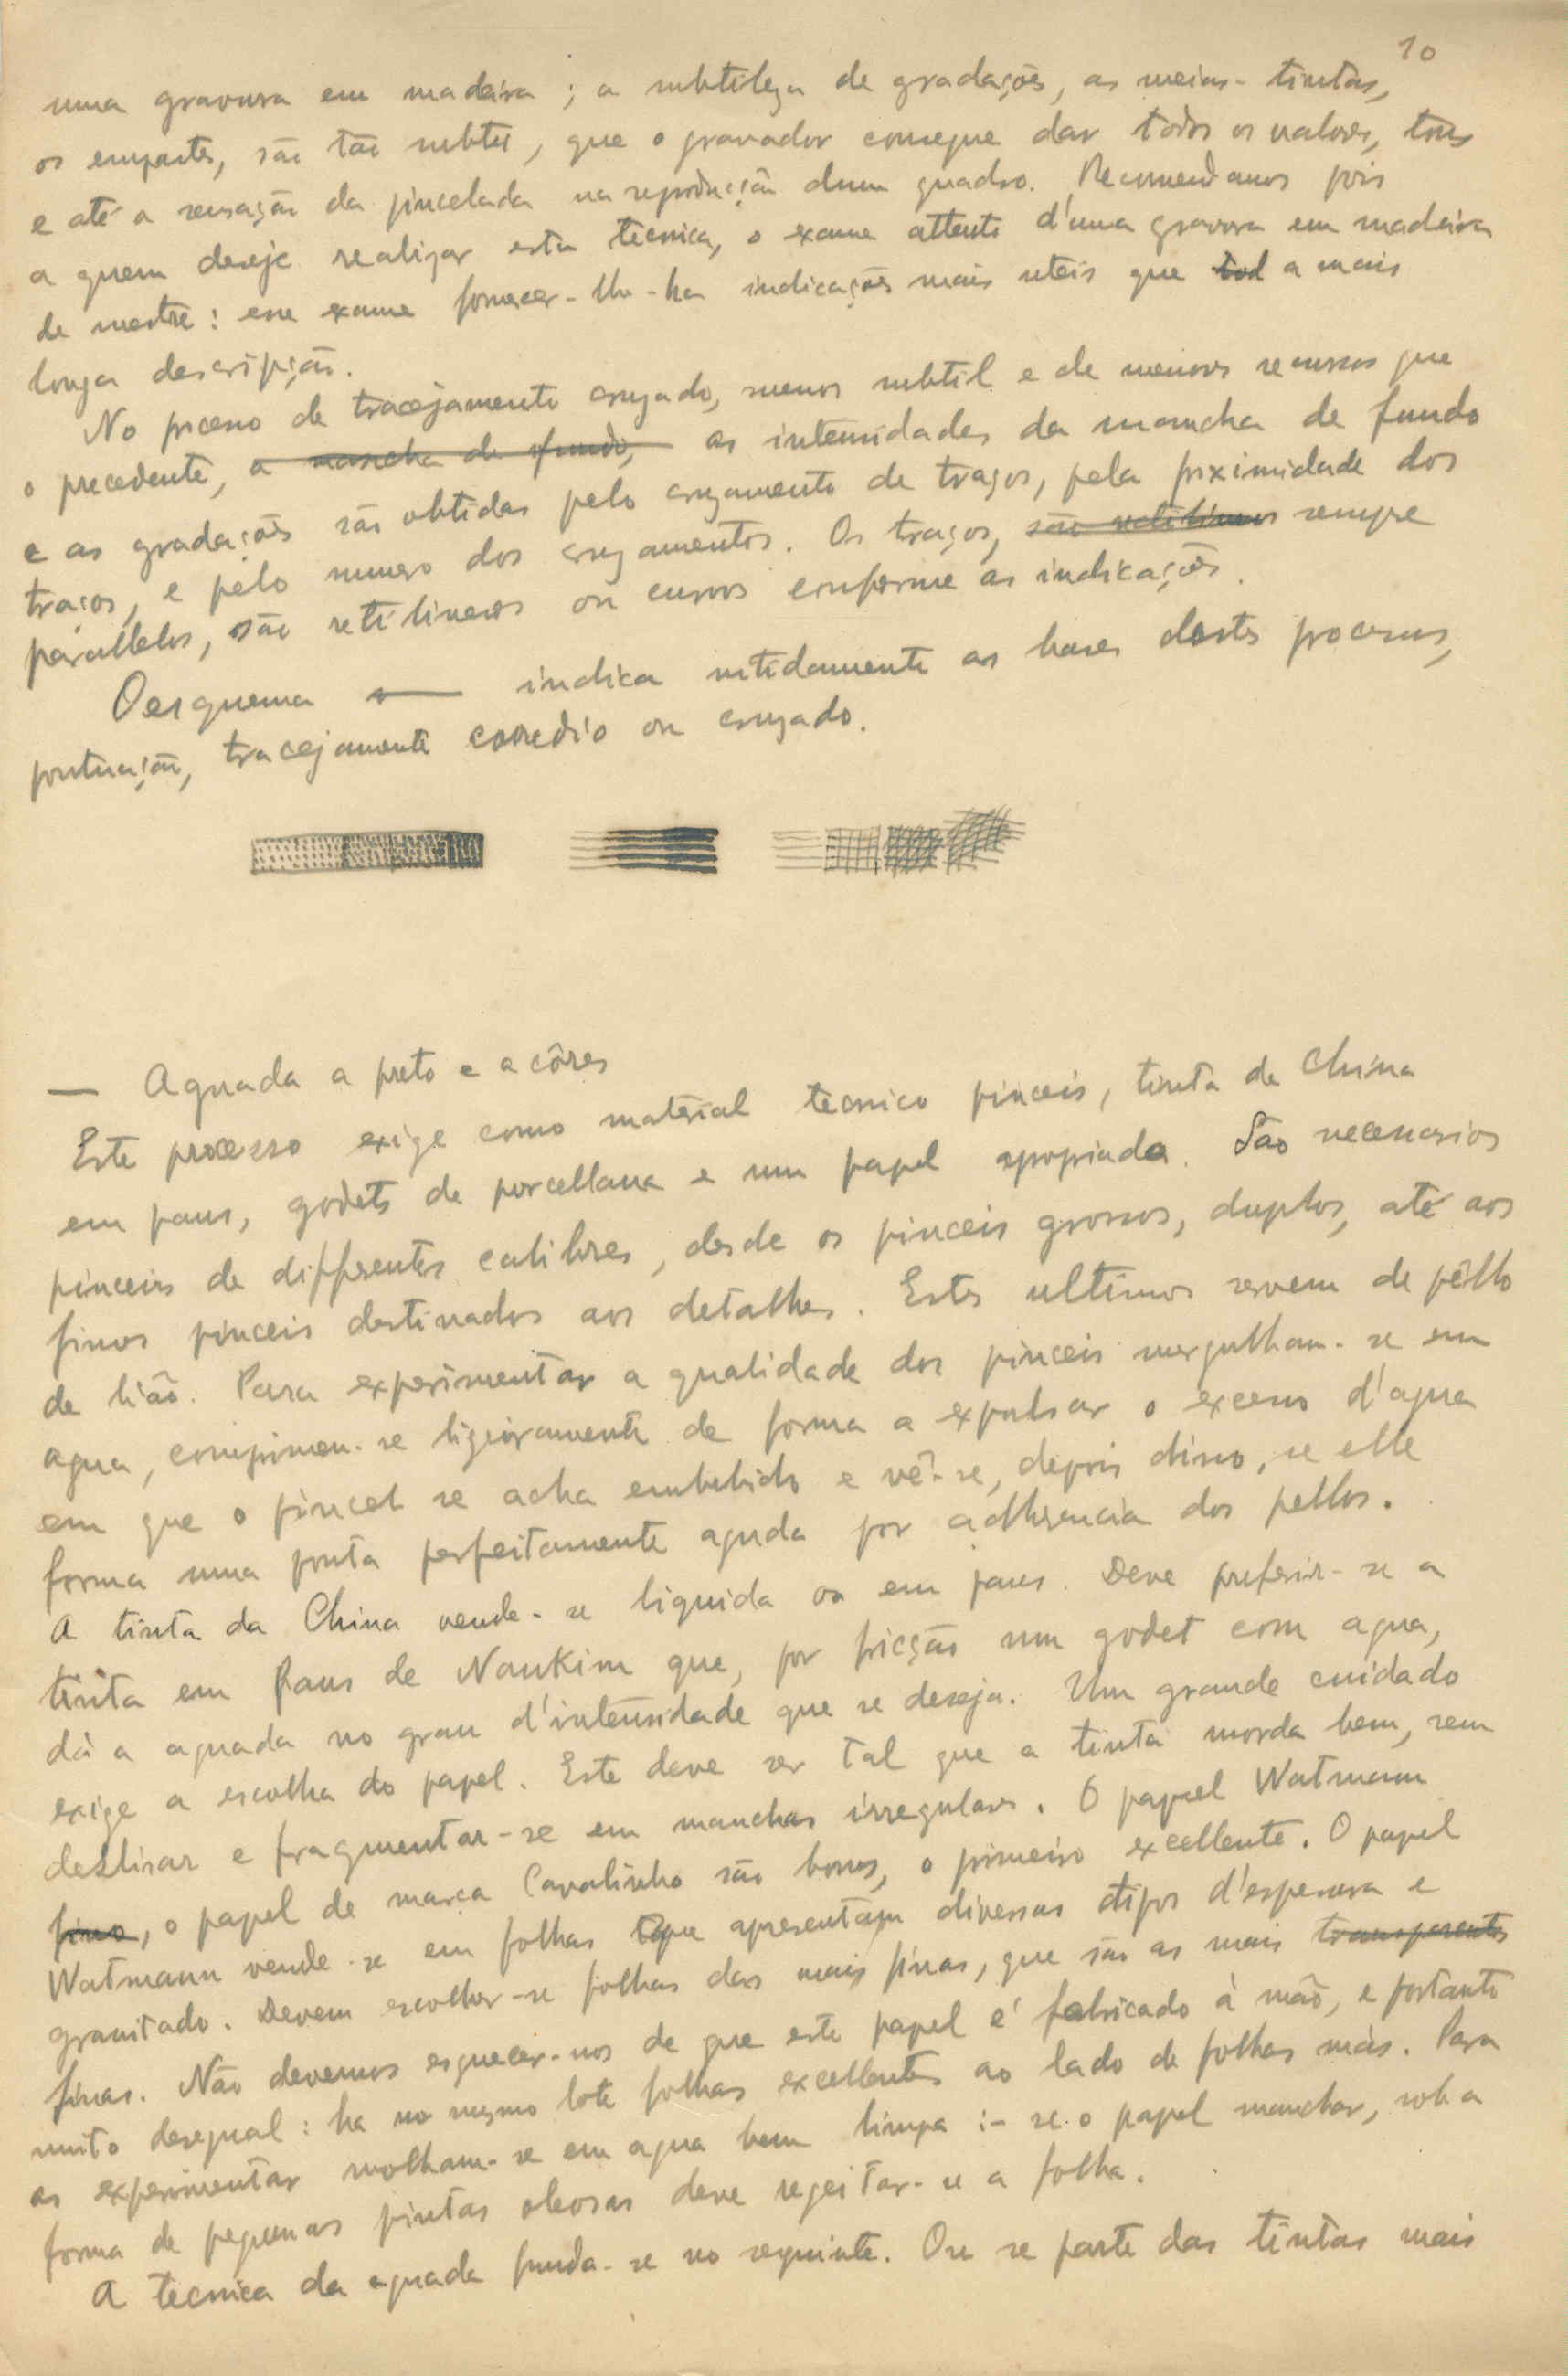 10
uma gravura em madeira ; a subtileza de gradações, as meias-tintas,
os empastes, são tão subtis, que o gravador consegue dar todos os valores, tons
e até a sensação da pincelada na reprodução dum quadro. Recomendamos pois
a quem deseje realizar esta tecnica, o exame attento d'uma gravura em madeira
de mestre : esse exame fornecer-lhe-ha indicações mais uteis que a mais
longa descripção.
No processo de tracejamento cruzado, menos subtil e de menores recursos que
o precedente, a mancha de fundo, as intensidades da mancha de fundo
e as gradações são obtidas pelo cruzamento de traços, pela proximidade dos
traços, e pelo numero dos cruzamentos. Os traços, são retilineos sempre
parallelos, são retilineos ou curvos conforme as indicações.
O esquema — indica nitidamente as bases destes processos,
pontuação, tracejamento corredio ou cruzado.
— Aguada a preto e a côres
Este processo exige como material tecnico pinceis, tinta da China
em paus, godets de porcellana e um papel apropriado. São necessarios
pinceis de differentes calibres, desde os pinceis grossos, duplos, até aos
finos pinceis destinados aos detalhes. Estes ultimos servem de pêllo
de lião. Para experimentar a qualidade dos pinceis mergulham-se em
agua, comprimem-se ligeiramente de forma a expulsar o excesso d'agua
em que o pincel se acha embebido e vê-se, depois disso, se elle
forma uma ponta perfeitamente aguda por adherencia dos pellos.
A tinta da China vende-se liquida ou em paus. Deve preferir-se a
tinta em paus de Nankim que, por fricção num godet com agua,
dá a aguada no grau d'intensidade que se deseja. Um grande cuidado
exige a escolha do papel. Este deve ser tal que a tinta morda bem, sem
deslisar e fragmentar-se em manchas irregulares. O papel Watmann
fino, o papel de marca Cavalinho são bons, o primeiro excellente. O papel
Watmann vende-se em folhas que apresentam diversos tipos d'espessura e
granitado. Devem escolher-se folhas das mais finas, que são as mais transparentes
finas. Não devemos esquecer-nos de que este papel é fabricado à mão, e portanto
muito desegual : ha no mesmo lote folhas excellentes ao lado de folhas más. Para
as experimentar molham-se em agua bem limpa :- se o papel manchar, sob a
forma de pequenas pintas oleosas deve regeitar-se a folha.
A tecnica da aguada funda-se no seguinte. Ou se parte das tintas mais